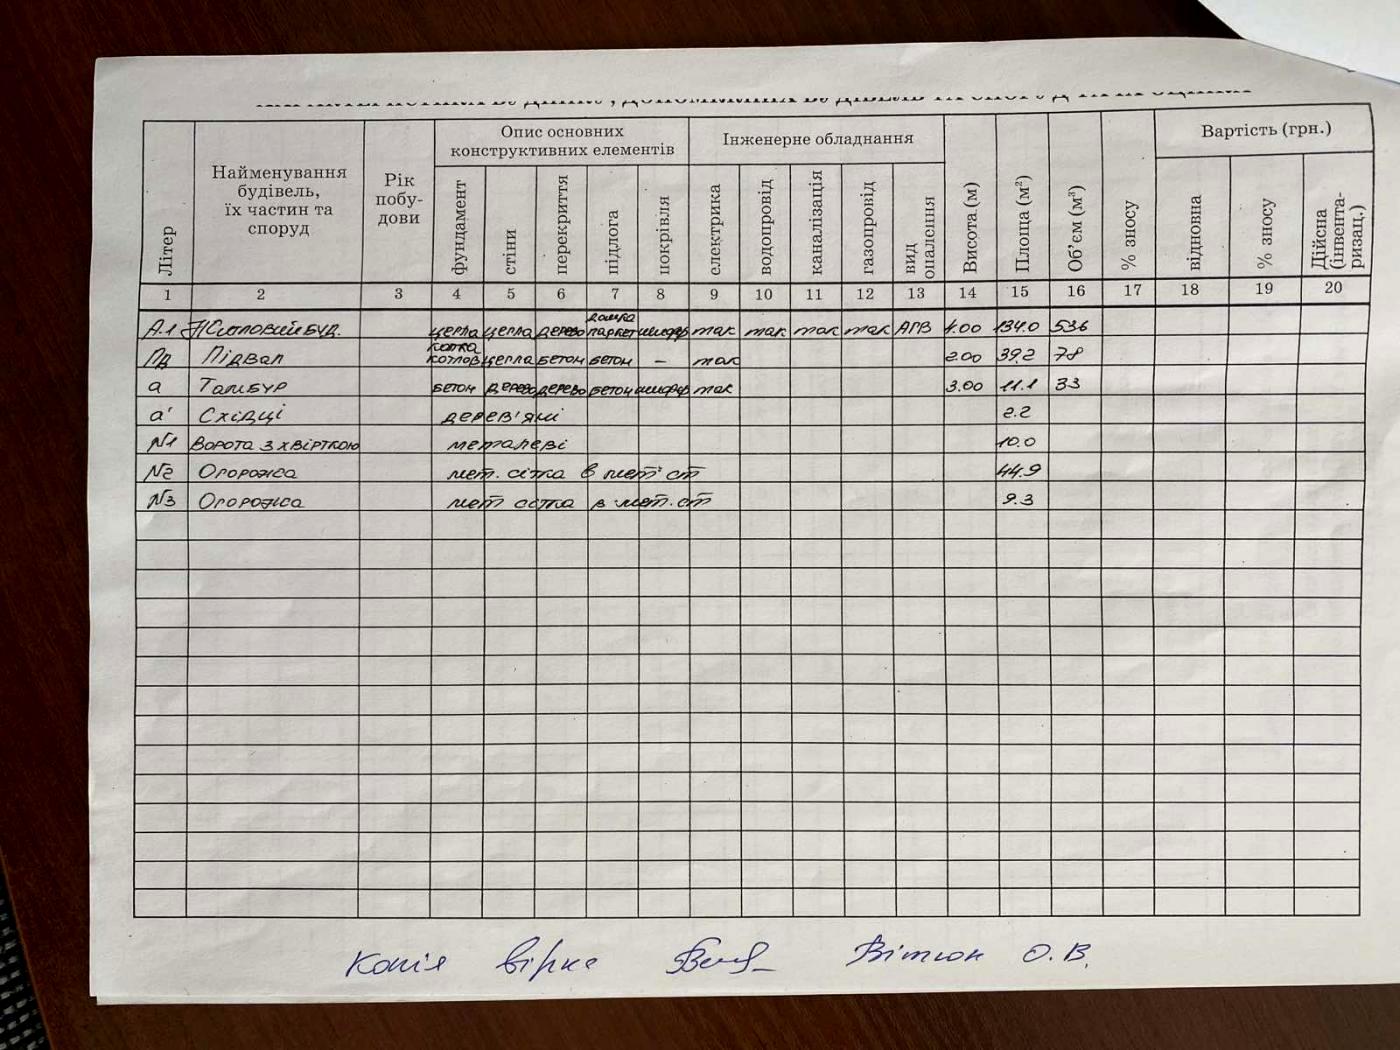 Літер
Найменування будівель, їх частин та споруд
Рік побу-дови
Опис основних конструктивних елементів
Інженерне обладнання
Висота (м)
Площа (м²)
Об'єм (м³)
% зносу
Вартість (грн.)
фундамент
стіни
перекриття
підлога
покрівля
електрика
водопровід
каналізація
газопровід
вид опалення
відновна
% зносу
Дійсна (інвента-ризац.)
1 2 3 4 5 6 7 8 9 10 11 12 13 14 15 16 17 18 19 20
А-1 Житловий буд. цегла цегла дерево дошка паркет шифер так так так так АГВ 4.00 134.0 536
Пд Підвал котлов цегла бетон бетон – так 2.00 39.2 78
а Тамбур бетон дерево дерево бетон шифер так 3.00 11.1 33
а' Східці дерев'яні 2.2
№1 Ворота з хвірткою металеві 10.0
№2 Огорожа мет. сітка в мет. ст 44.9
№3 Огорожа мет сітка в мет. ст 9.3
Копія вірна Вітюк О.В.